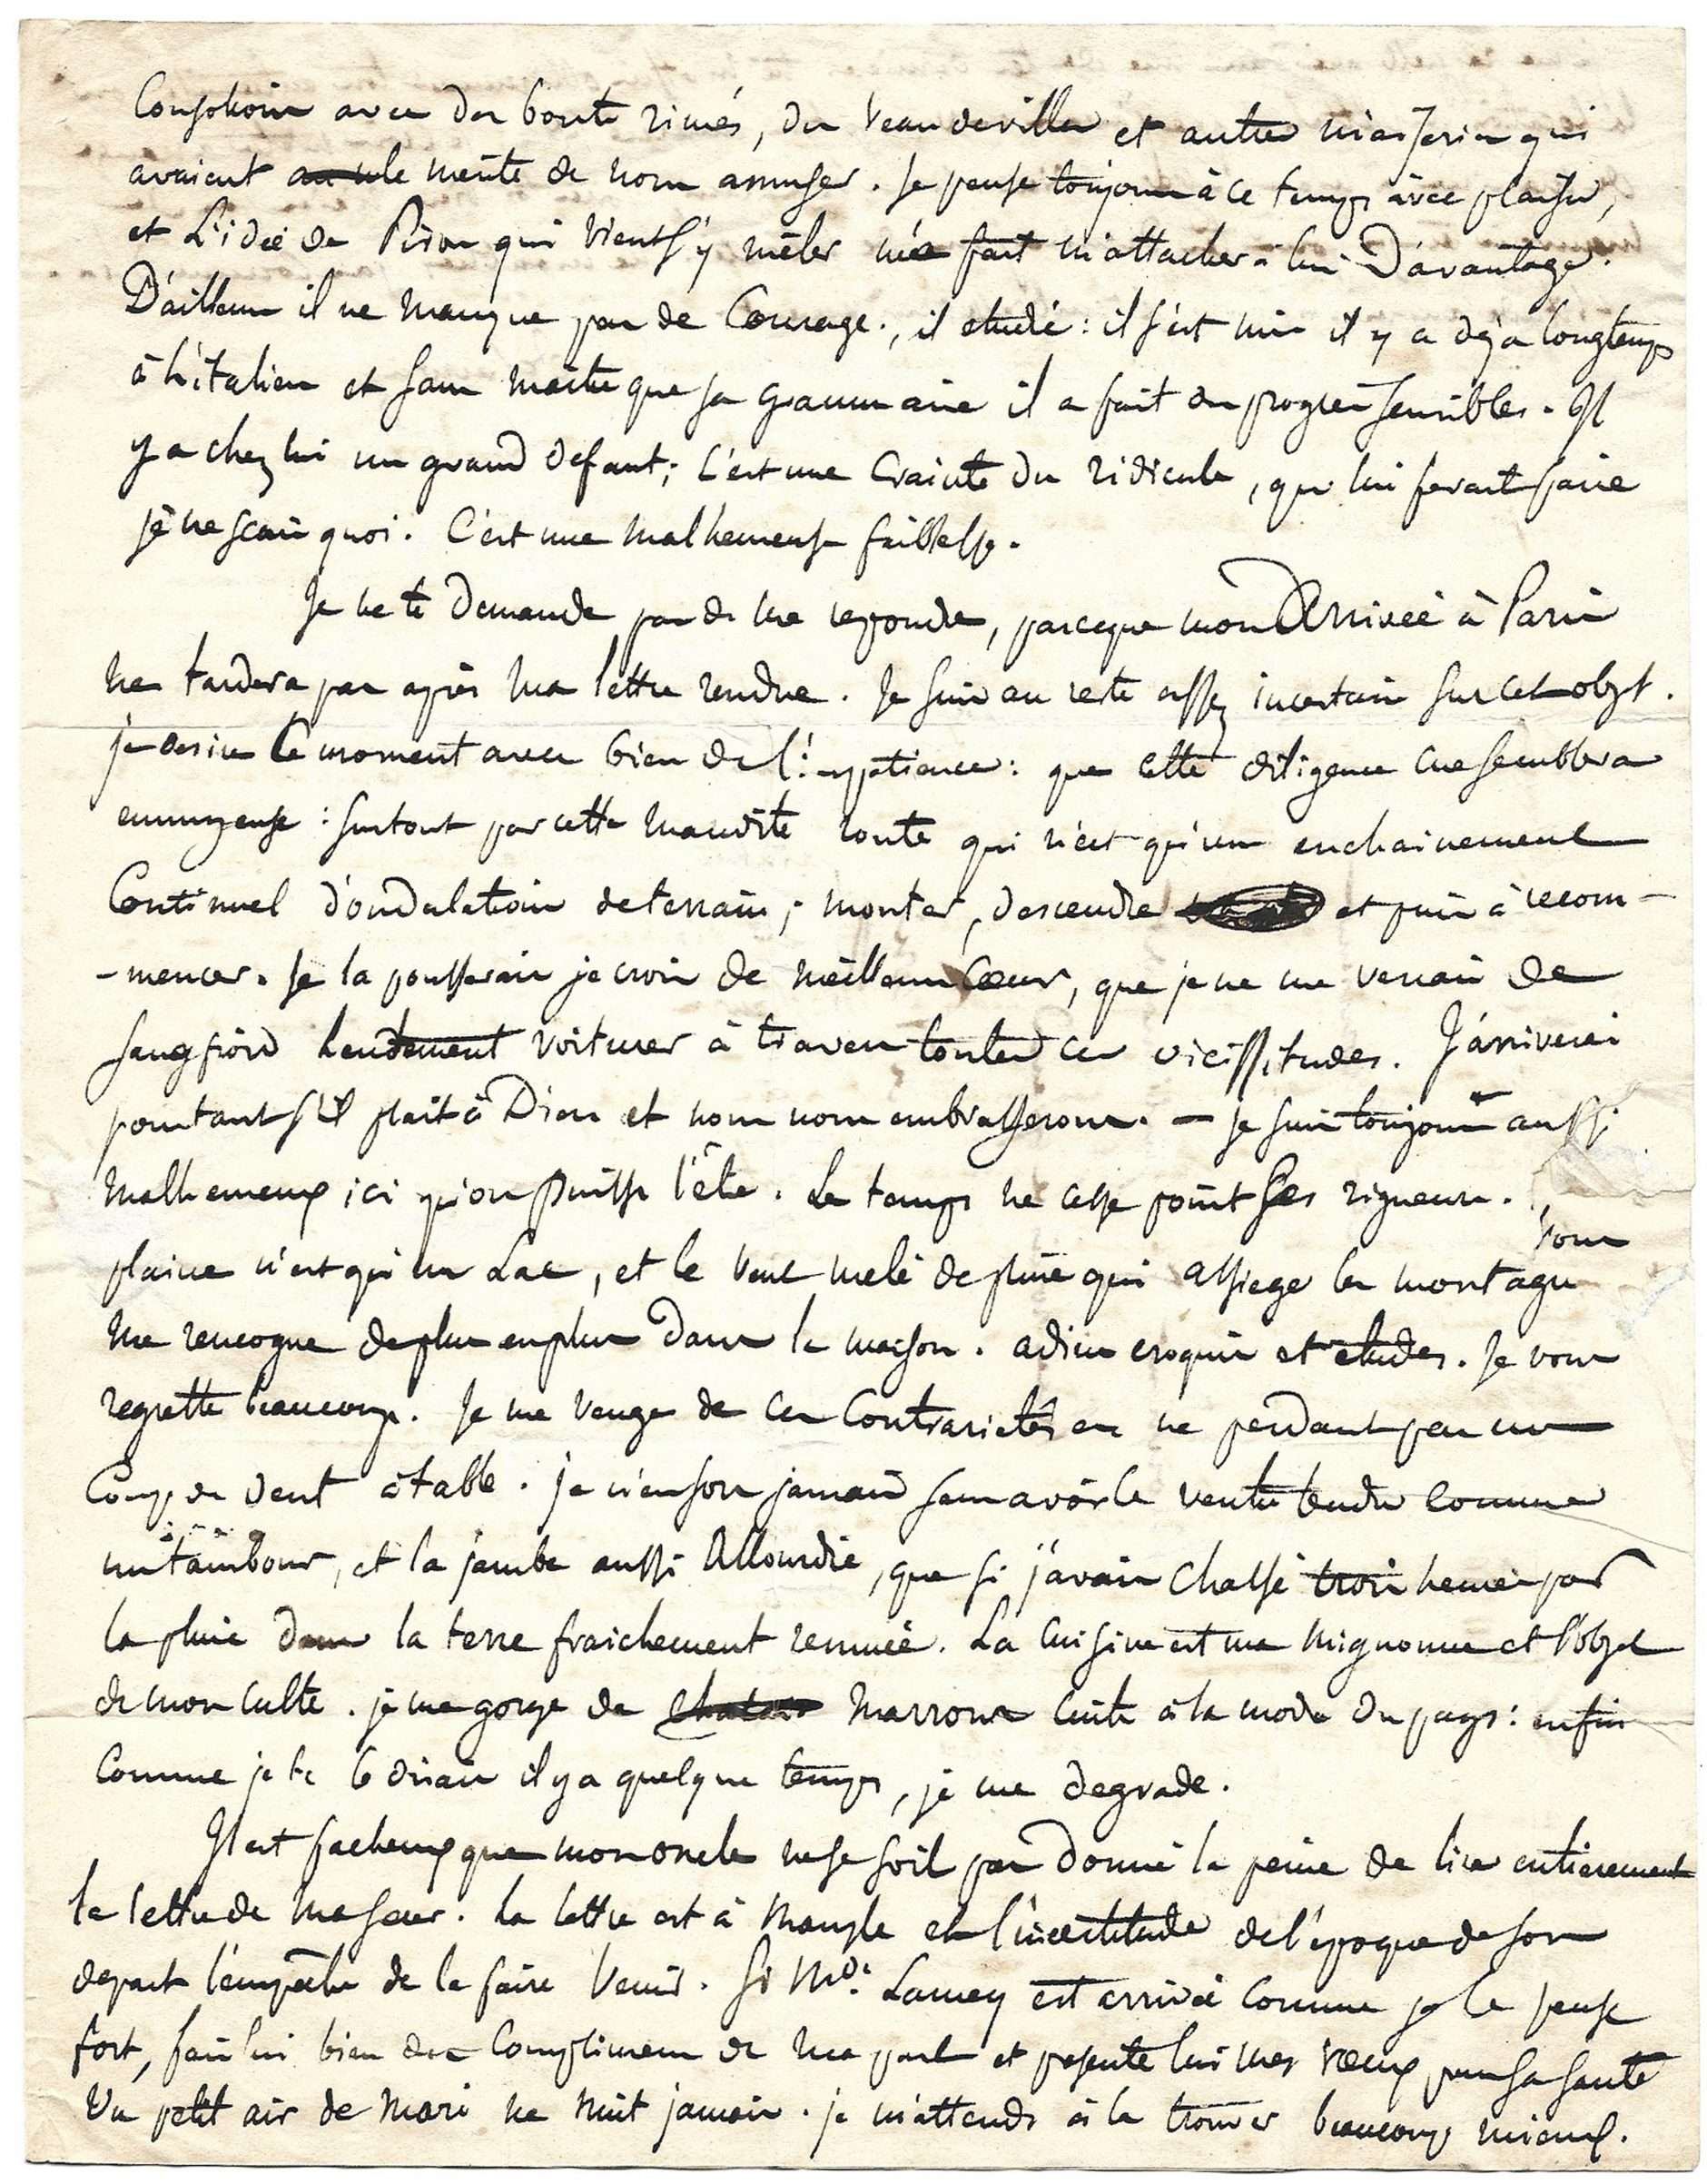 consolions avec des bouts rimés, des vaudevilles et autres niaiseries qui
avaient le merite de nous amuser. Je pense toujours à ce temps avec plaisir,
et L'idée de Piron qui vient s'y mêler m'a fait m'attacher à lui D'avantage.
D'ailleurs il ne manque pas de Courage., il etudie: il s'est mis il y a déja longtemps
à l'italien et sans maitre que sa grammaire il a fait des progrès sensibles. Il
y a chez lui un grand defaut; c'est une Crainte du ridicule, qui lui ferait faire
je ne scais quoi. C'est une malheureuse faiblesse.
Je ne te demande pas de me repondre, parceque mon Arrivée à Paris
ne tardera pas après ma lettre rendue. Je suis au reste assez incertain sur cet objet.
je desire ce moment avec bien de l'impatience: que cette diligence me semblera
ennuyeuse: surtout par cette maudite route qui n'est qu'un enchainement
Continuel d'ondulations de terrain; monter, descendre et puis à recom-
-mencer. Je la pousserais je crois de meilleur Cœur, que je ne me verrais de
sangfroid lentement voiturer à travers toutes ces vicissitudes. J'arriverai
pourtant s'il plait à Dieu et nous nous embrasserons. — Je suis toujours aussi
malheureux ici qu'on puisse l'être. Le temps ne cesse point ses rigueurs.
plaine n'est qu'un Lac, et le vent melé de pluie qui assiege les montagnes
me rencogne de plus en plus dans la maison. adieu croquis et etudes. Je vous
regrette beaucoup. Je me venge de ces Contrarietés en ne perdant pas un
Coup de dent à table. je n'en sors jamais sans avoir le ventre tendu comme
un tambour, et la jambe aussi Allourdie, que si j'avais chassé trois heures par
la pluie dans la terre fraichement remuée. La cuisine est ma mignonne et l'objet
de mon culte. je me gorge de marrons cuits à la mode du pays: enfin
Comme je te le disais il y a quelque temps, je me degrade.
Il est facheux que mon oncle ne se soit pas donné la peine de lire entierement
la lettre de ma sœur. La lettre est à Mansle et l'incertitude de l'époque de son
depart l'empêche de la faire venir. Si Mde. Lamey est arrivée comme je le pense
fort, fais lui bien des Complimens de ma part et presente lui mes vœux pour sa santé
Un petit air de mari ne nuit jamais. je m'attends à la trouver beaucoup mieux.